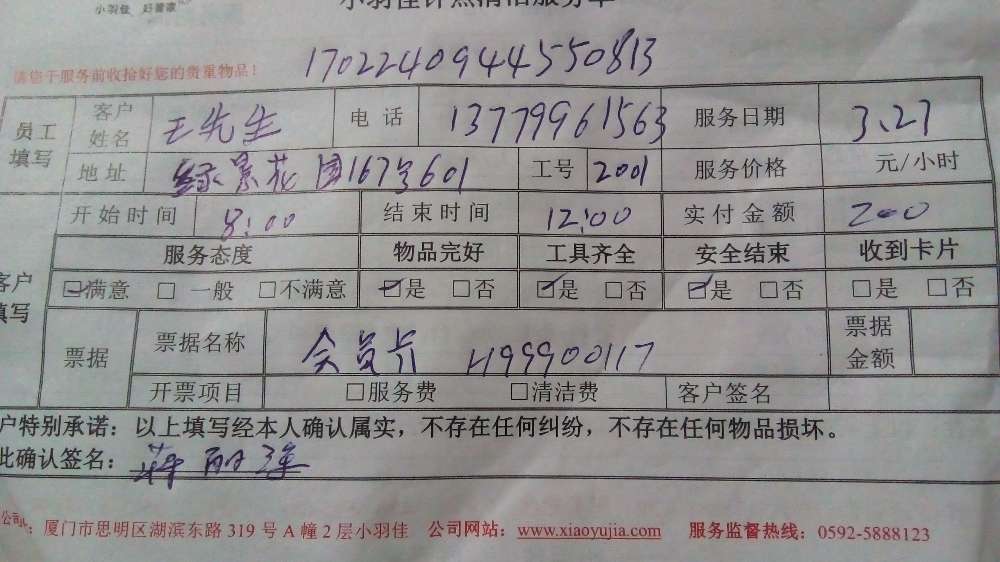 小羽佳 好管家
小羽佳计点清洁服务单
请您于服务前收拾好您的贵重物品！ 17022409444550813
员工填写 客户姓名 王先生 电话 13779961563 服务日期 3.27
地址 绿景花园167号601 工号 2001 服务价格 元/小时
开始时间 8:00 结束时间 12:00 实付金额 200
服务态度 物品完好 工具齐全 安全结束 收到卡片
客户填写 ☑满意 □一般 □不满意 ☑是 □否 ☑是 □否 ☑是 □否 □是 □否
票据 票据名称 会员卡 H99900117 票据金额
开票项目 □服务费 □清洁费 客户签名
户特别承诺：以上填写经本人确认属实，不存在任何纠纷，不存在任何物品损坏。
此确认签名：
公司地址：厦门市思明区湖滨东路 319 号 A 幢 2 层小羽佳 公司网站：www.xiaoyujia.com 服务监督热线：0592-5888123